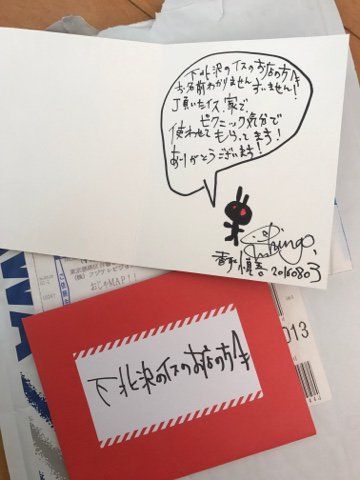 下北沢のイスのお店の方へ
お名前わかりませんすいません!
頂いたイス、家で、
ピクニック気分で
使わせてもらってます!
ありがとうございます!
Shingo,
香取慎吾 20160803
(株)フジテレビジョン
おじゃMAP!!
013
下北沢のイスのお店の方へ